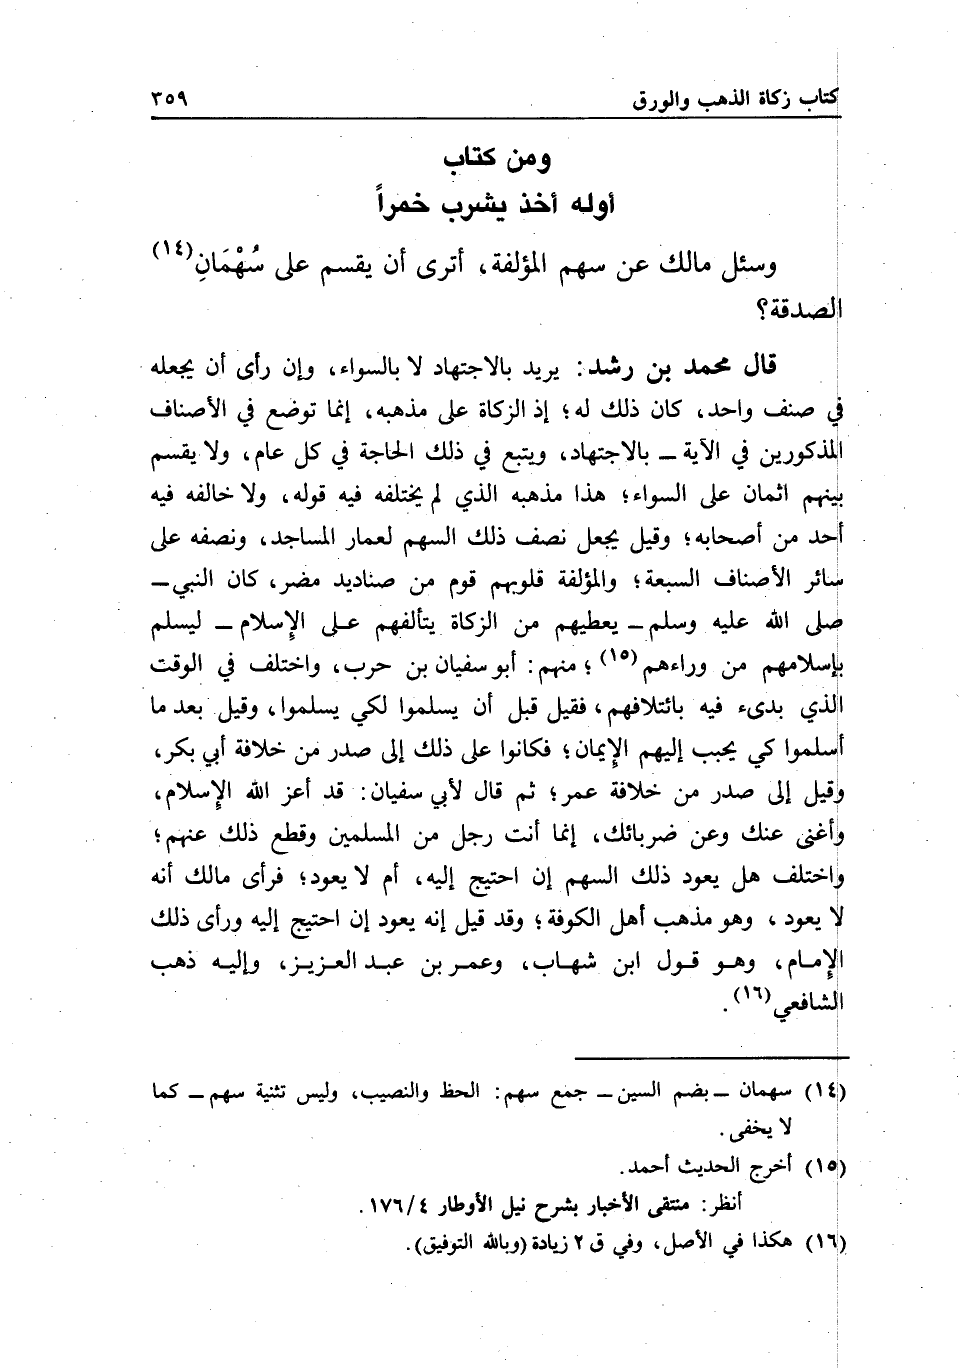 كتاب زكاة الذهب والورق ٣٥٩
ومن كتاب
أوله أخذ يشرب خمراً
وسئل مالك عن سهم المؤلفة، أترى أن يقسم على سُهْمَانِ(١٤)
الصدقة؟
قال محمد بن رشد: يريد بالاجتهاد لا بالسواء، وإن رأى أن يجعله
في صنف واحد، كان ذلك له؛ إذ الزكاة على مذهبه، إنما توضع في الأصناف
المذكورين في الآية ــ بالاجتهاد، ويتبع في ذلك الحاجة في كل عام، ولا يقسم
بينهم اثمان على السواء؛ هذا مذهبه الذي لم يختلفه فيه قوله، ولا خالفه فيه
أحد من أصحابه؛ وقيل يجعل نصف ذلك السهم لعمار المساجد، ونصفه على
سائر الأصناف السبعة؛ والمؤلفة قلوبهم قوم من صناديد مضر، كان النبي ــ
صلى الله عليه وسلم ــ يعطيهم من الزكاة يتألفهم على الإسلام ــ ليسلم
بإسلامهم من وراءهم(١٥)؛ منهم: أبو سفيان بن حرب، واختلف في الوقت
الذي بدىء فيه بائتلافهم، فقيل قبل أن يسلموا لكي يسلموا، وقيل بعد ما
أسلموا كي يحبب إليهم الإيمان؛ فكانوا على ذلك إلى صدر من خلافة أبي بكر،
وقيل إلى صدر من خلافة عمر؛ ثم قال لأبي سفيان: قد أعز الله الإسلام،
وأغنى عنك وعن ضربائك، إنما أنت رجل من المسلمين وقطع ذلك عنهم؛
واختلف هل يعود ذلك السهم إن احتيج إليه، أم لا يعود؛ فرأى مالك أنه
لا يعود، وهو مذهب أهل الكوفة؛ وقد قيل إنه يعود إن احتيج إليه ورأى ذلك
الإمام، وهو قول ابن شهاب، وعمر بن عبد العزيز، وإليه ذهب
الشافعي(١٦).
(١٤) سهمان ــ بضم السين ــ جمع سهم: الحظ والنصيب، وليس تثنية سهم ــ كما
لا يخفى.
(١٥) أخرج الحديث أحمد.
أنظر: منتقى الأخبار بشرح نيل الأوطار ٤/١٧٦.
(١٦) هكذا في الأصل، وفي ق ٢ زيادة (وبالله التوفيق).